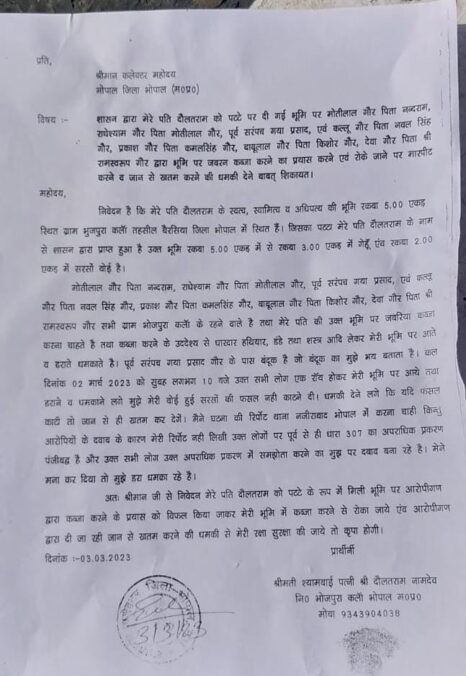 प्रति,
श्रीमान कलेक्टर महोदय
भोपाल जिला भोपाल (म०प्र०)
विषय :- शासन द्वारा मेरे पति दौलतराम को पटटे पर दी गई भूमि पर मोतीलाल गौर पिता नन्दराम,
राधेश्याम गौर पिता मोतीलाल गौर, पूर्व सरंपच गया प्रसाद, एवं कल्लू गौर पिता नवल सिंह
गौर, प्रकाश गौर पिता कमलसिंह गौर, बाबूलाल गौर पिता किशोर गौर, देवा गौर पिता श्री
रामस्वरूप गौर द्वारा भूमि पर जबरन कब्जा करने का प्रयास करने एवं रोके जाने पर मारपीट
करने व जान से खतम करने की धमकी देने बाबत् शिकायत।
महोदय,
निवेदन है कि मेरे पति दौलतराम के स्वत्व, स्वामित्व व अधिपत्य की भूमि रकबा 5.00 एकड़
स्थित ग्राम भुजपुरा कलॅा तहसील बैरसिया जिला भोपाल में स्थित हैं। जिसका पटटा मेरे पति दौलतराम के नाम
से शासन द्वारा प्राप्त हुआ है उक्त भूमि रकबा 5.00 एकड़ में से रकबा 3.00 एकड़ में गेहूॅं एंव रकबा 2.00
एकड़ में सरसों बोई है।
मोतीलाल गौर पिता नन्दराम, राधेश्याम गौर पिता मोतीलाल गौर, पूर्व सरंपच गया प्रसाद, एवं कल्लू
गौर पिता नवल सिंह गौर, प्रकाश गौर पिता कमलसिंह गौर, बाबूलाल गौर पिता किशोर गौर, देवा गौर पिता श्री
रामस्वरूप गौर सभी ग्राम भोजपुरा कलॅा के रहने वाले है तथा मेरे पति की उक्त भूमि पर जबरिया कब्जा
करना चाहते है तथा कब्जा करने के उददेश्य से धारदार हथियार, डंडे तथा शस्त्र आदि लेकर मेरी भूमि पर आते
व डराते धमकाते है। पूर्व सरंपच गया प्रसाद गौर के पास बंदूक है जो बंदूक का मुझे भय बताता है। कल
दिनांक 02 मार्च 2023 को सुबह लगभग 10 बजे उक्त सभी लोग एक रॉय होकर मेरी भूमि पर आये तथा
डराने व धमकाने लगे मुझे मेरी बोई हुई सरसों की फसल नही काटने दी। धमकी देने लगे कि यदि फसल
काटी तो जान से ही खतम कर देगें। मैने घटना की रिर्पोट थाना नजीराबाद भोपाल में करना चाही किन्तु
आरोपियों के दवाब के कारण मेरी रिर्पोट नही लिखी उक्त लोगों पर पूर्व से ही धारा 307 का अपराधिक प्रकरण
पंजीबद्ध है और उक्त सभी लोग उक्त अपराधिक प्रकरण में समझोता करने का मुझ पर दबाव बना रहे है। मेने
मना कर दिया तो मुझे डरा धमका रहे है।
अतः श्रीमान जी से निवेदन मेरे पति दौलतराम को पटटे के रूप में मिली भूमि पर आरोपीगण
द्वारा कब्जा करने के प्रयास को विफल किया जाकर मेरी भूमि में कब्जा करने से रोका जाये एंव आरोपीगण
द्वारा दी जा रही जान से खतम करने की धमकी से मेरी रक्षा सुरक्षा की जाये तो कृपा होगी।
दिनांक :-03.03.2023
प्रार्थीर्नी
श्रीमती श्यामबाई पत्नी श्री दौलतराम नामदेव
नि० भोजपुरा कलॅा भोपाल म०प्र०
मोवा 9343904038